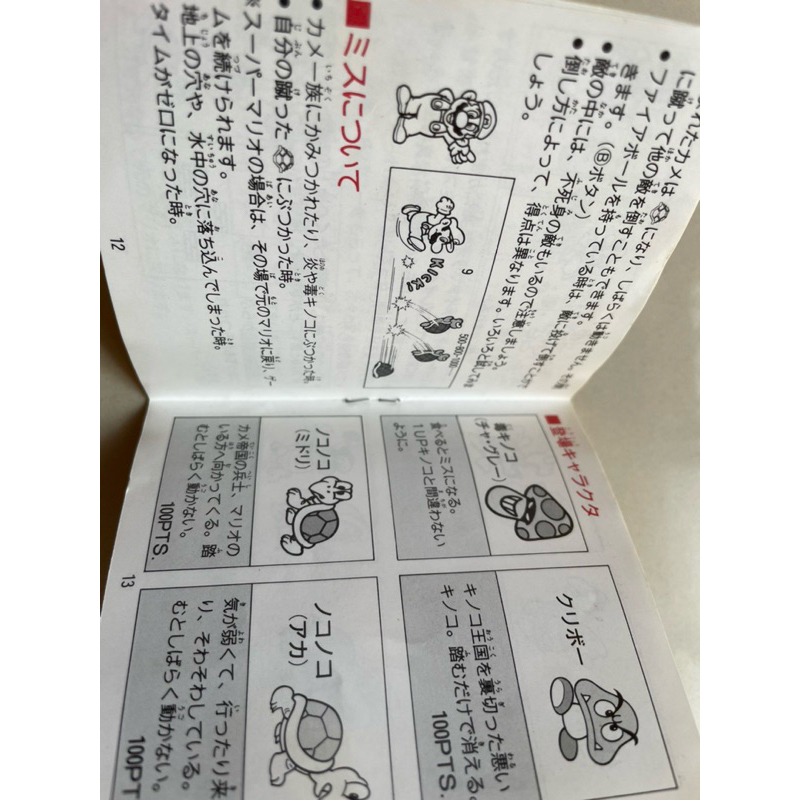 れたカメは になり、しばらくは動きません。その間
に蹴って他の敵を倒すこともできます。
• ファイアボールを持っている時は、敵に投げて倒すことがで
きます。(Ⓑボタン)
• 敵の中には、不死身の敵もいるので注意しましょう。
• 倒し方によって、得点は異なります。いろいろと試してみま
しょう。
KICK
500-800-1000
■ミスについて
• カメ一族にかみつかれたり、炎や毒キノコにぶつかった時。
• 自分の蹴った にぶつかった時。
※スーパーマリオの場合は、その場で元のマリオに戻り、ゲー
ムを続けられます。
地上の穴や、水中の穴に落ち込んでしまった時。
タイムがゼロになった時。
12
■登場キャラクタ
毒キノコ
(チャ・グレー)
食べるとミスになる。
1UPキノコと間違わない
ように。
クリボー
キノコ王国を裏切った悪い
キノコ。踏むだけで消える。
100PTS.
ノコノコ
(ミドリ)
カメ帝国の兵士、マリオの
いる方へ向かってくる。踏
むとしばらく動かない。
100PTS.
ノコノコ
(アカ)
気が弱くて、行ったり来
り、そわそわしている。
むとしばらく動かない。
100PT
13